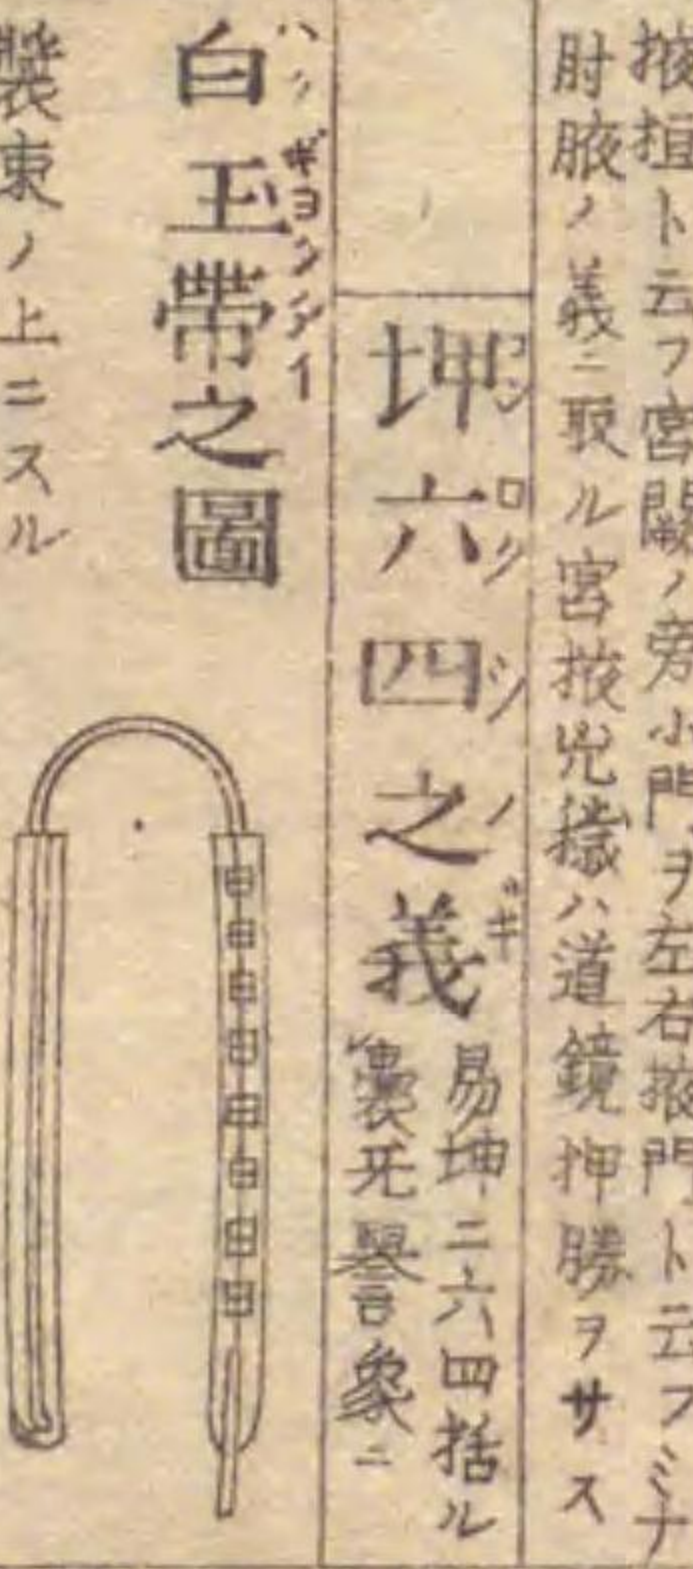 掖揎ト云フ宮闕ノ旁小門ヲ左右掖門ト云フミナ
肘腋ノ義ニ取ル宮掖兇穢ハ道鏡押勝ヲサス
坤六四之義
コンロクシノギ
易坤ニ六四括ル
囊无譽象ニ
白玉帶之圖
ハクギヨクタイ
裝束ノ上ニスル